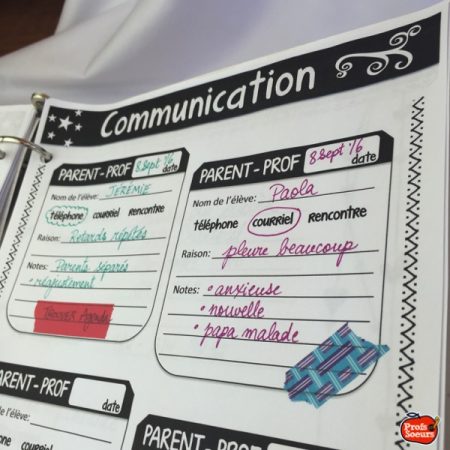 Communication
PARENT-PROF 8 sept 16 date
Nom de l'élève: JEREMIE
téléphone courriel rencontre
Raison: Retards répétés
Notes: Parents séparés
• réajustement
TROUVER Agenda
PARENT-PROF 8 sept 16 date
Nom de l'élève: Paola
téléphone courriel rencontre
Raison: pleure beaucoup
Notes: • anxieuse
• nouvelle
• papa malade
PARENT-PROF date
Nom de l'élève:
téléphone courriel
PARENT-PROF date
Profs Soeurs